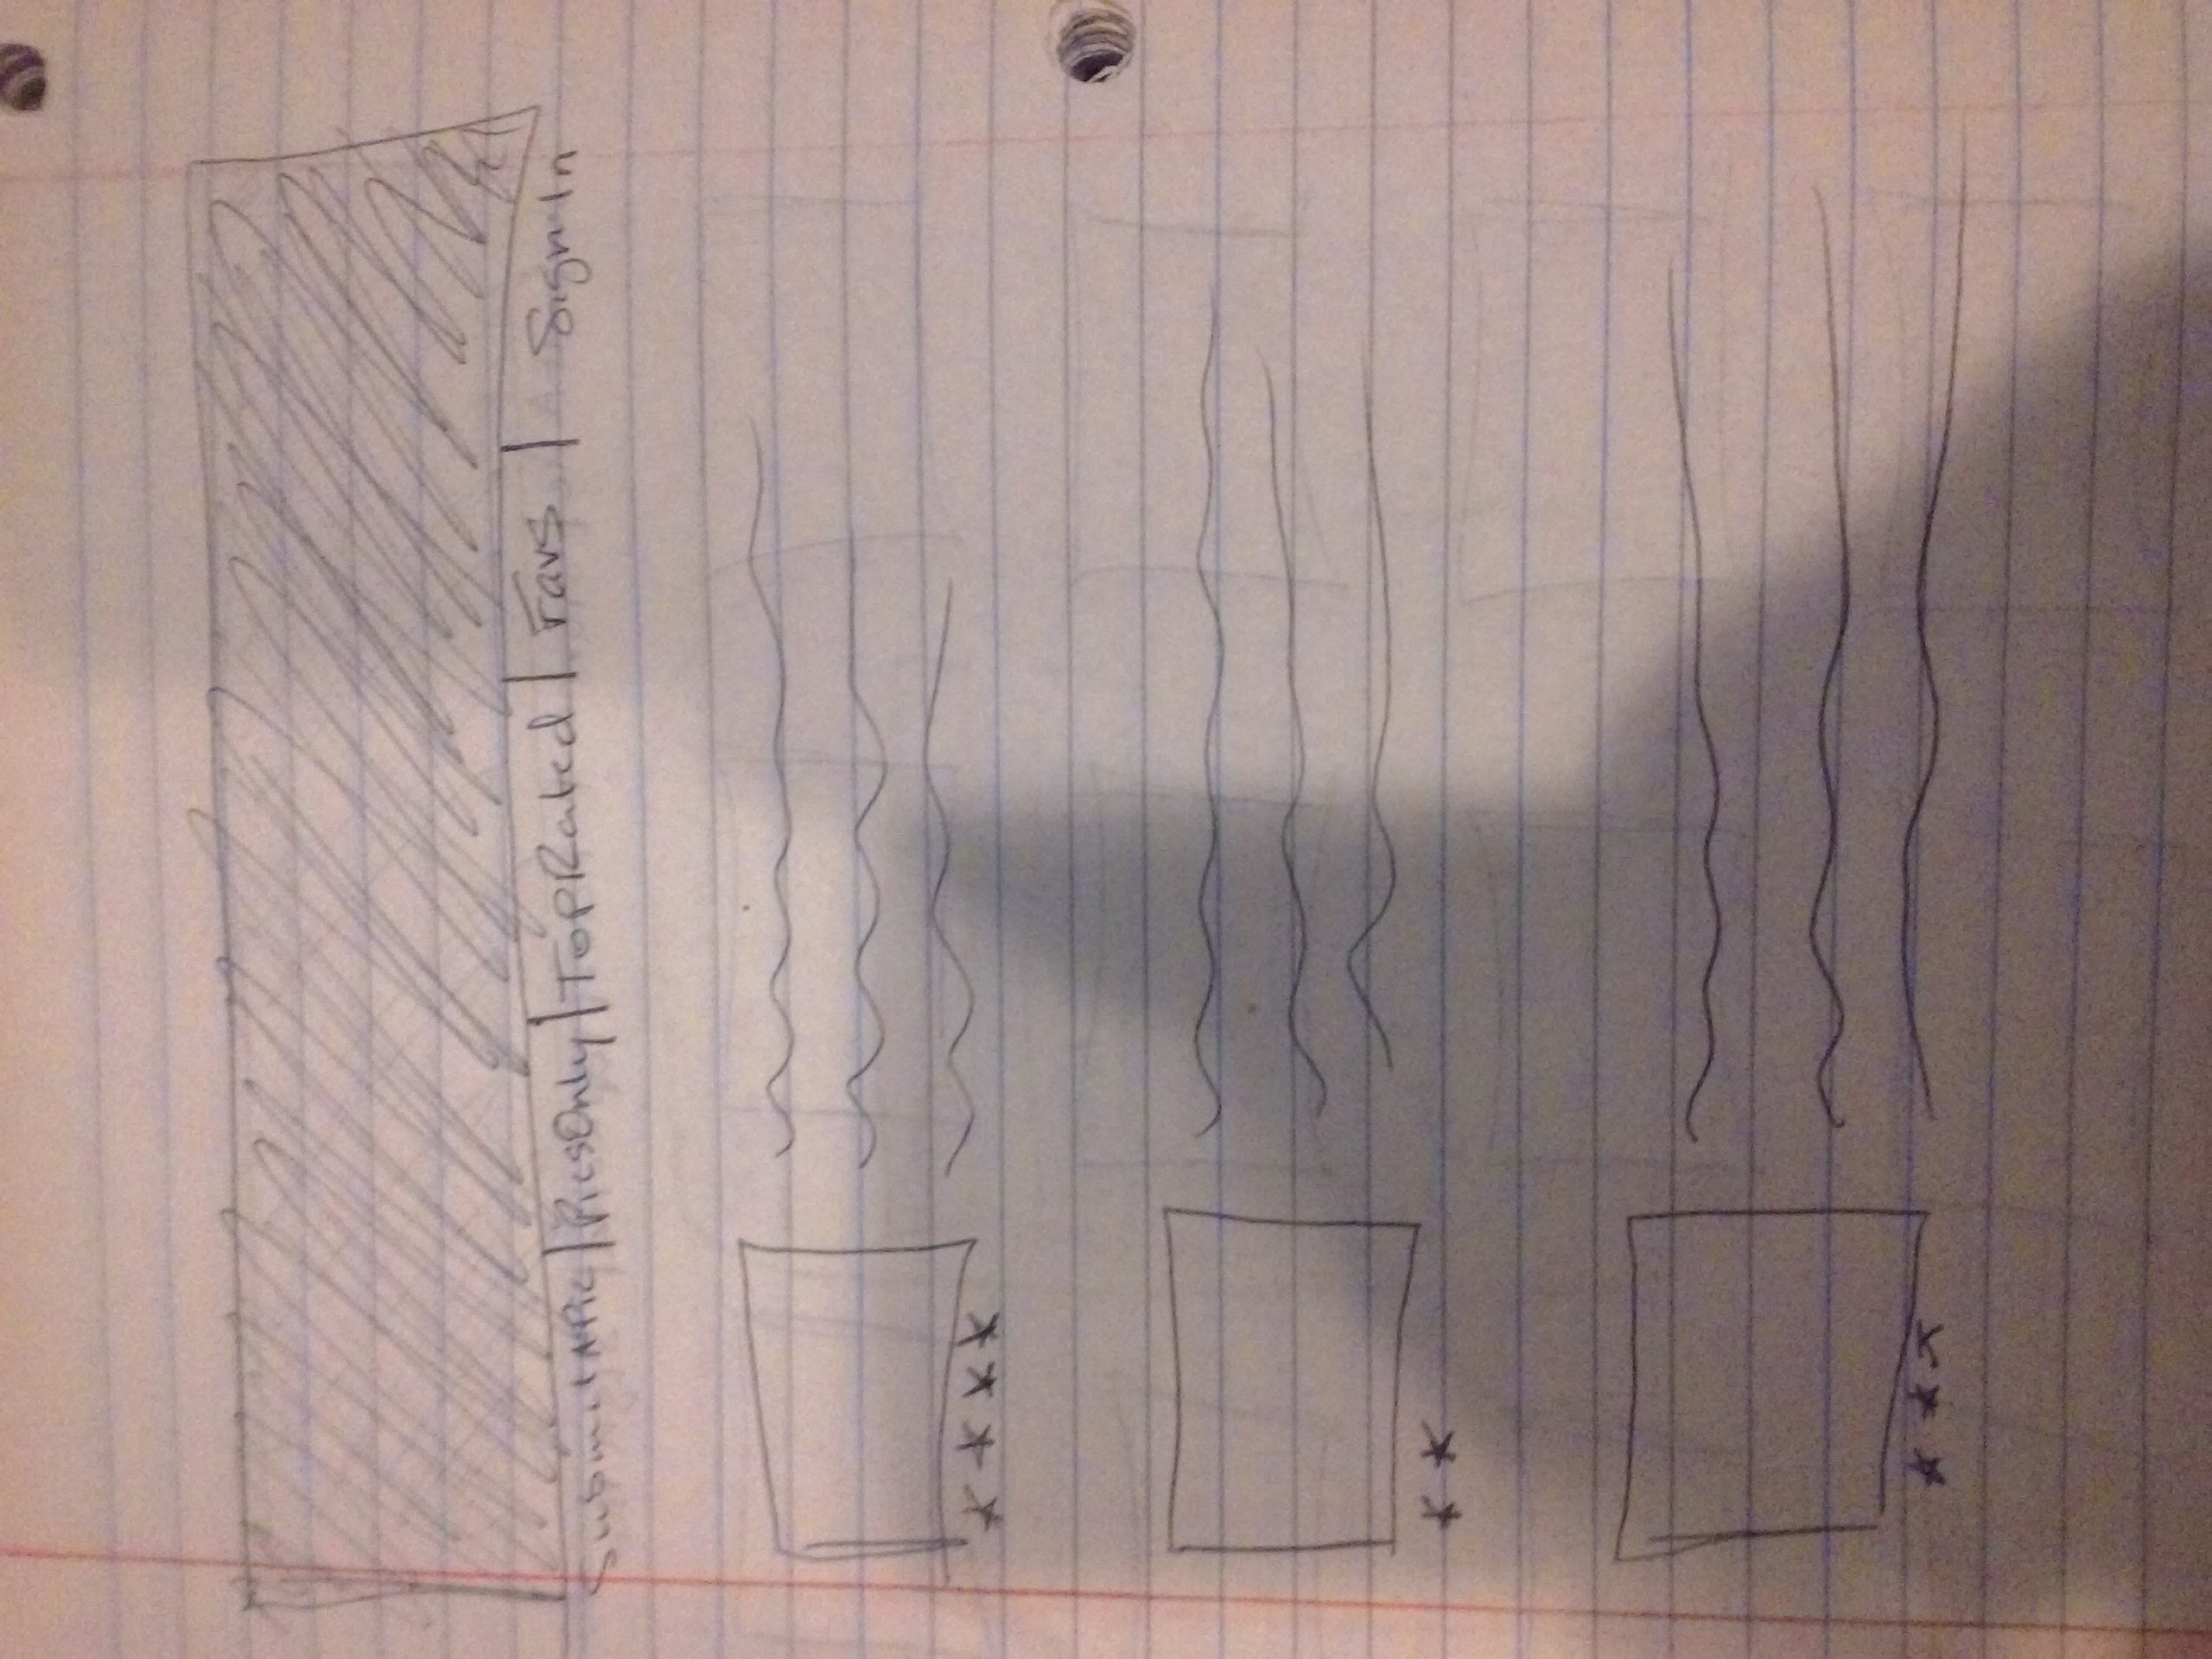 SubmitAPic | PicsOnly | TopRated | Favs | Sign In